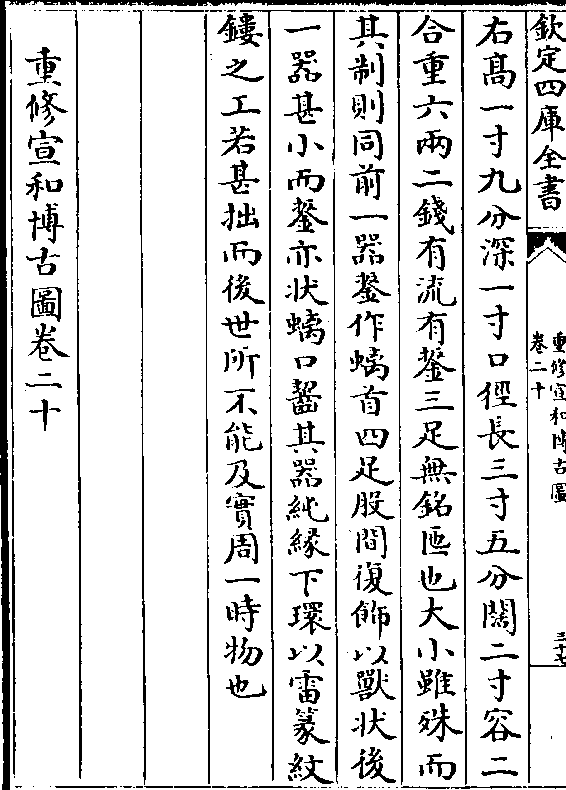 欽定四庫全書
重修宣和博古圖
卷二十
三十七
右髙一寸九分深一寸口徑長三寸五分闊二寸容二
合重六兩二錢有流有鋬三足無銘匜也大小雖殊而
其制則同前一器鋬作螭首四足股間復飾以獸状後
一器甚小而鋬亦状螭口齧其器純緣下環以雷篆紋
鏤之工若甚拙而後世所不能及實周一時物也
重修宣和博古圖卷二十